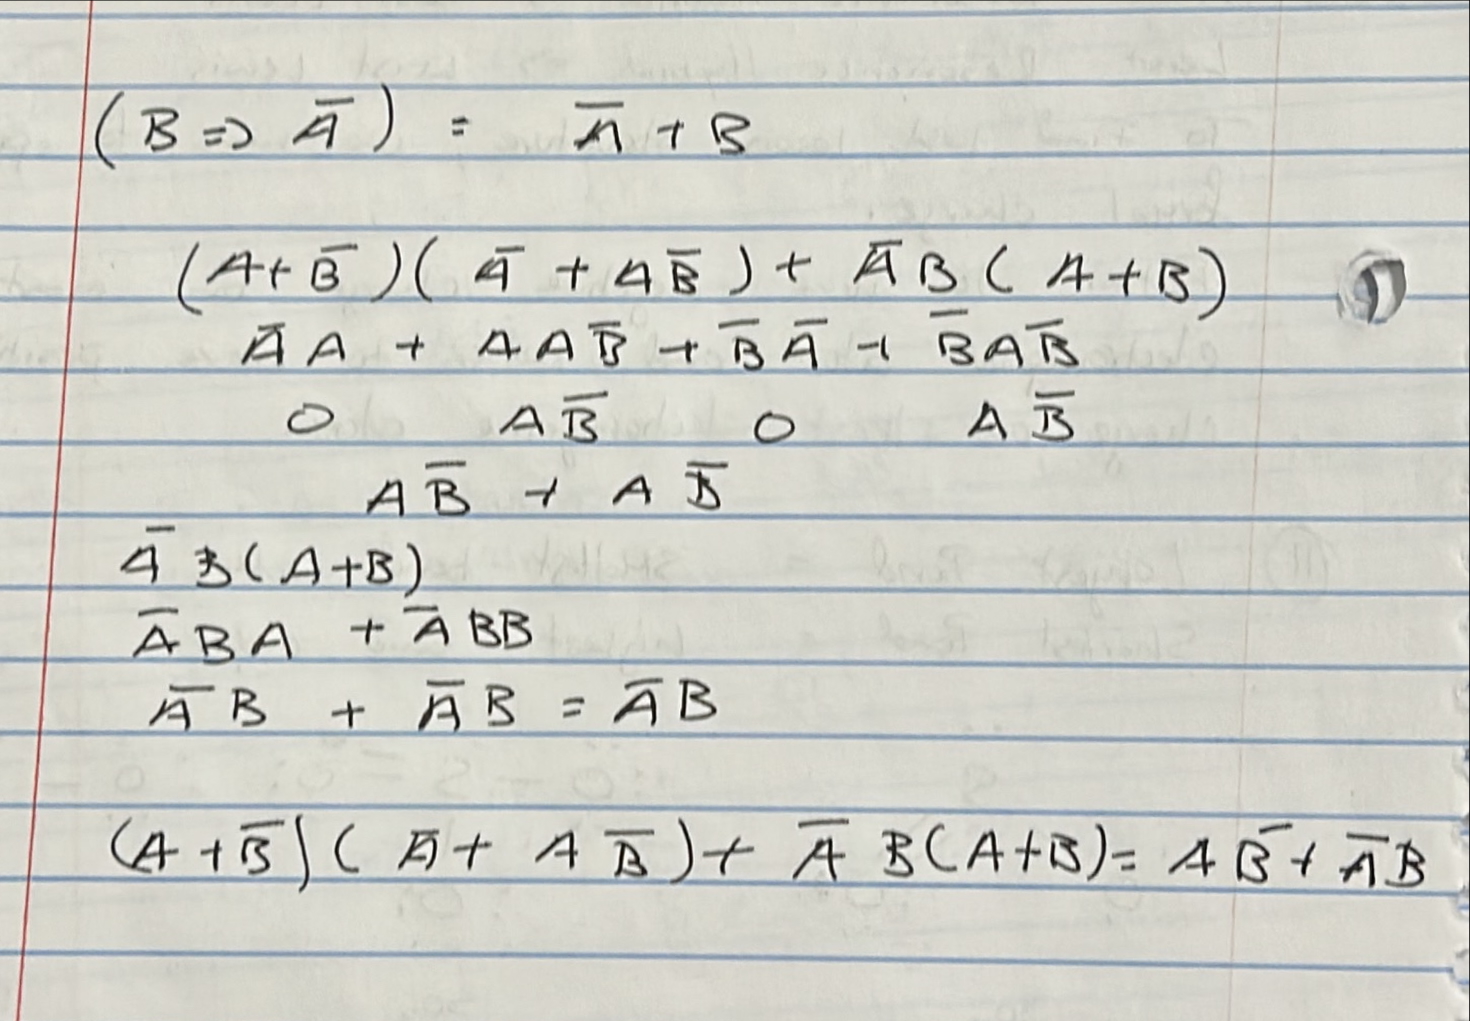 (B => A̅) = A̅ + B
(A + B̅)(A̅ + AB̅) + A̅B(A + B)
A̅A + AAB̅ + B̅A̅ + B̅AB̅
0 AB̅ 0 AB̅
AB̅ + AB̅
A̅B(A+B)
A̅BA + A̅BB
A̅B + A̅B = A̅B
(A + B̅)(A̅ + AB̅) + A̅B(A+B) = AB̅ + A̅B